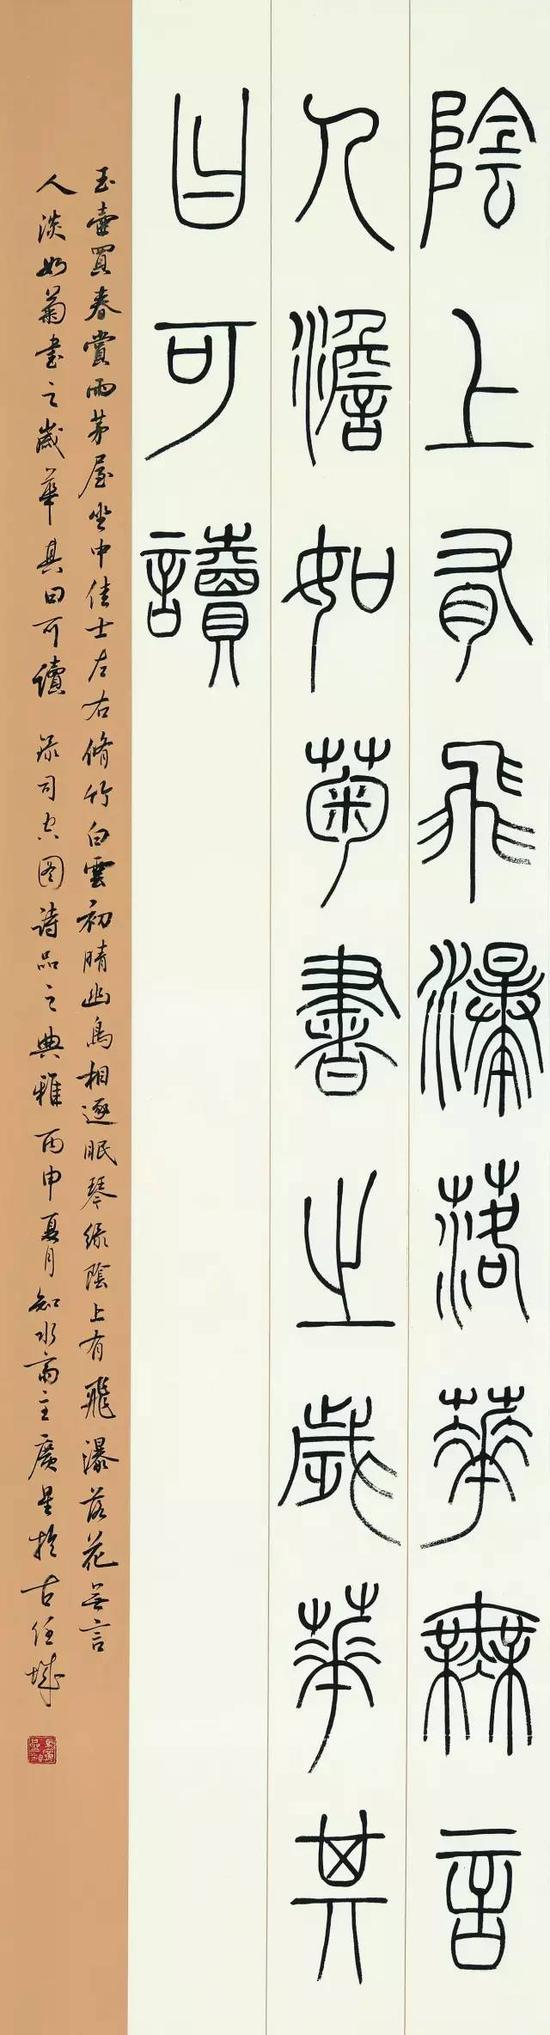 陰上有飛瀑落華無言
人澹如菊書之歲華其
曰可讀
玉壺買春賞雨茅屋坐中佳士左右脩竹白雲初晴幽鳥相逐眠琴綠陰上有飛瀑落花無言
人淡如菊書之歲華其曰可讀 录司空图詩品之典雅 丙申夏月知水斋主廣星於古任城